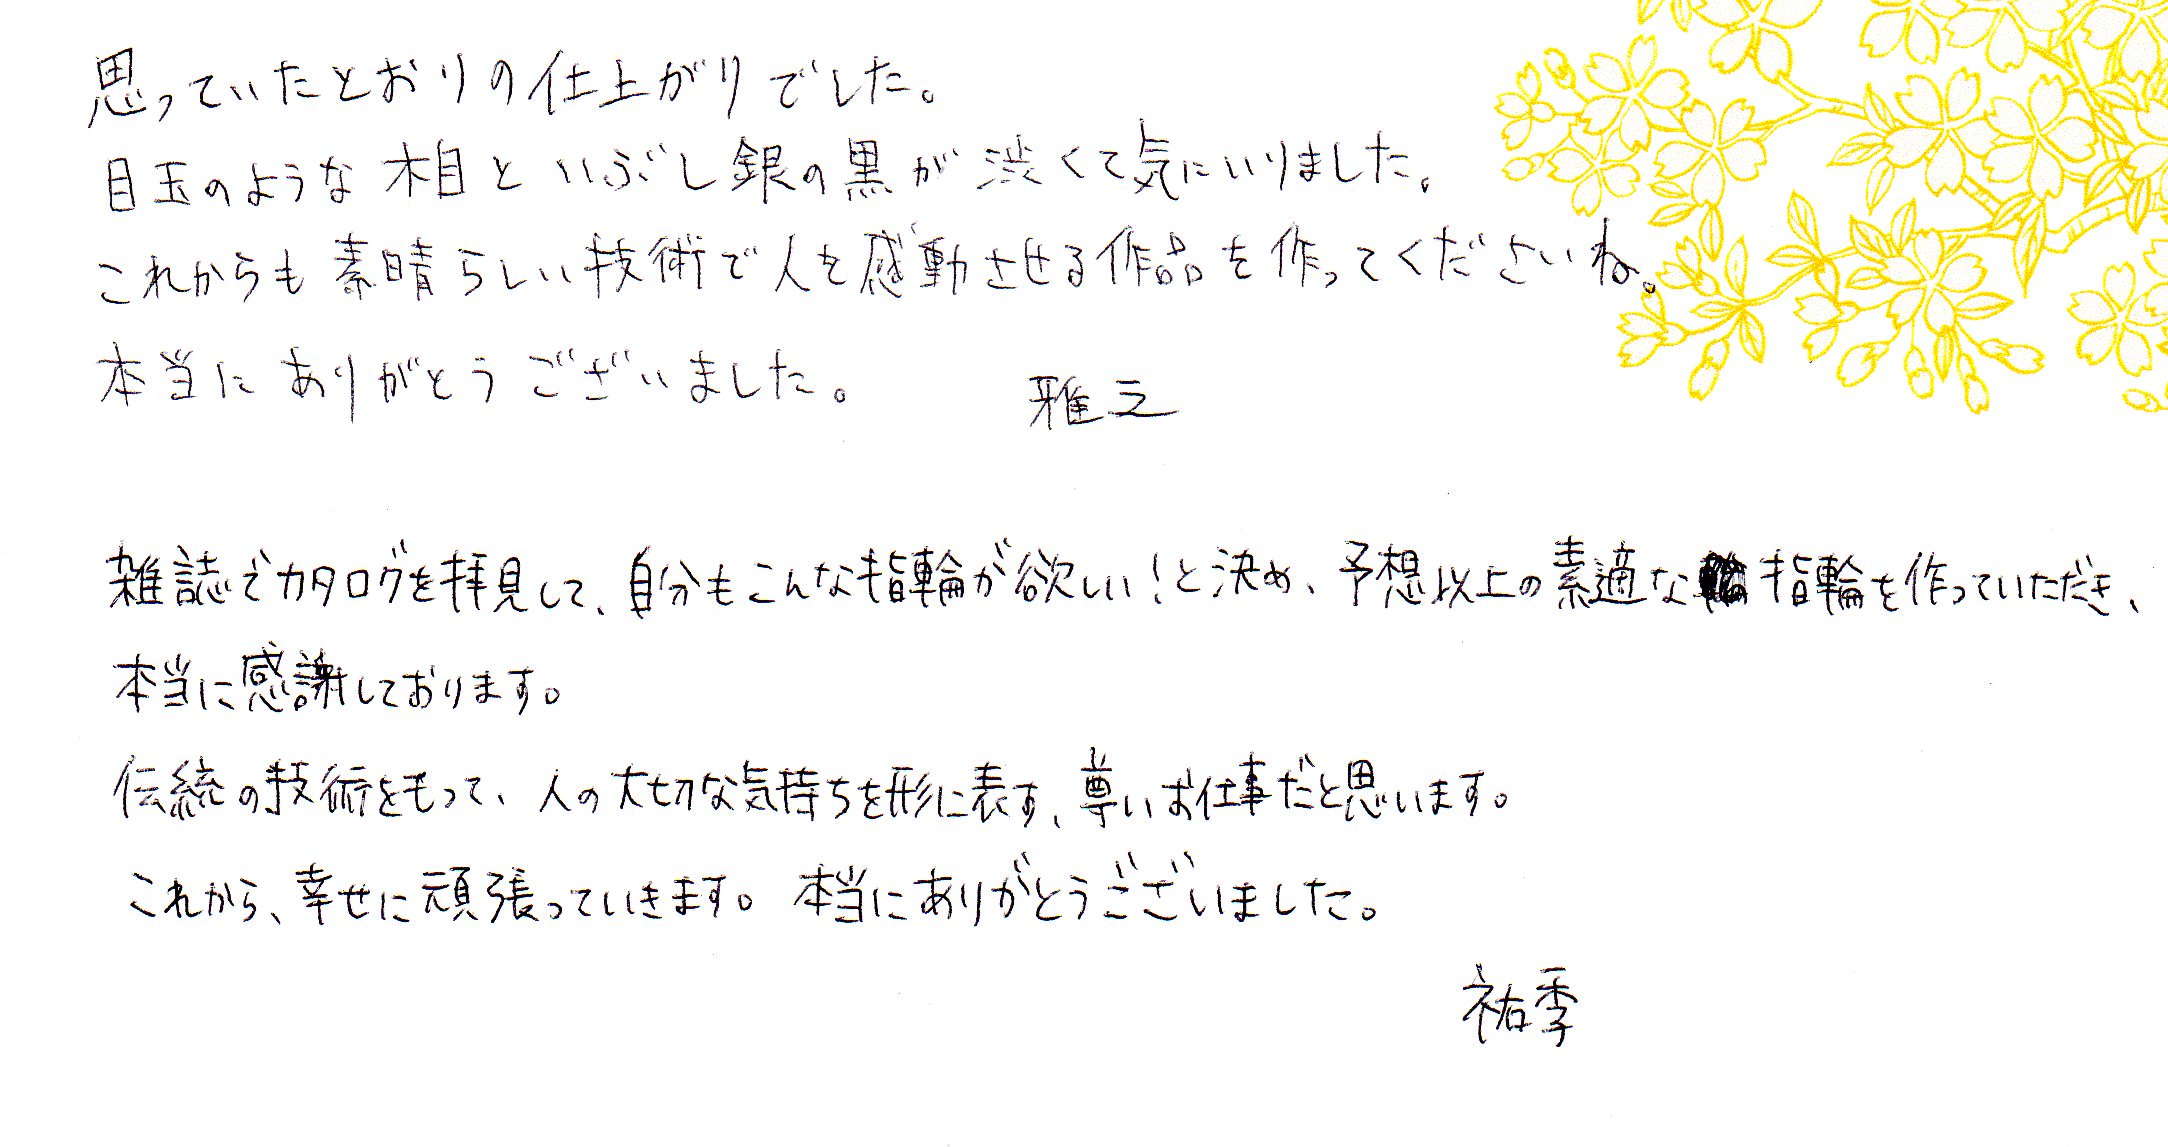 思っていたとおりの仕上がりでした。
目玉のような木目といぶし銀の黒が渋くて気にいりました。
これからも素晴らしい技術で人を感動させる作品を作ってくださいね。
本当にありがとうございました。 雅之
雑誌でカタログを拝見して、自分もこんな指輪が欲しい!と決め、予想以上の素適な指輪を作っていただき、
本当に感謝しております。
伝統の技術をもって、人の大切な気持ちを形に表す、尊いお仕事だと思います。
これから、幸せに頑張っていきます。本当にありがとうございました。
祐季